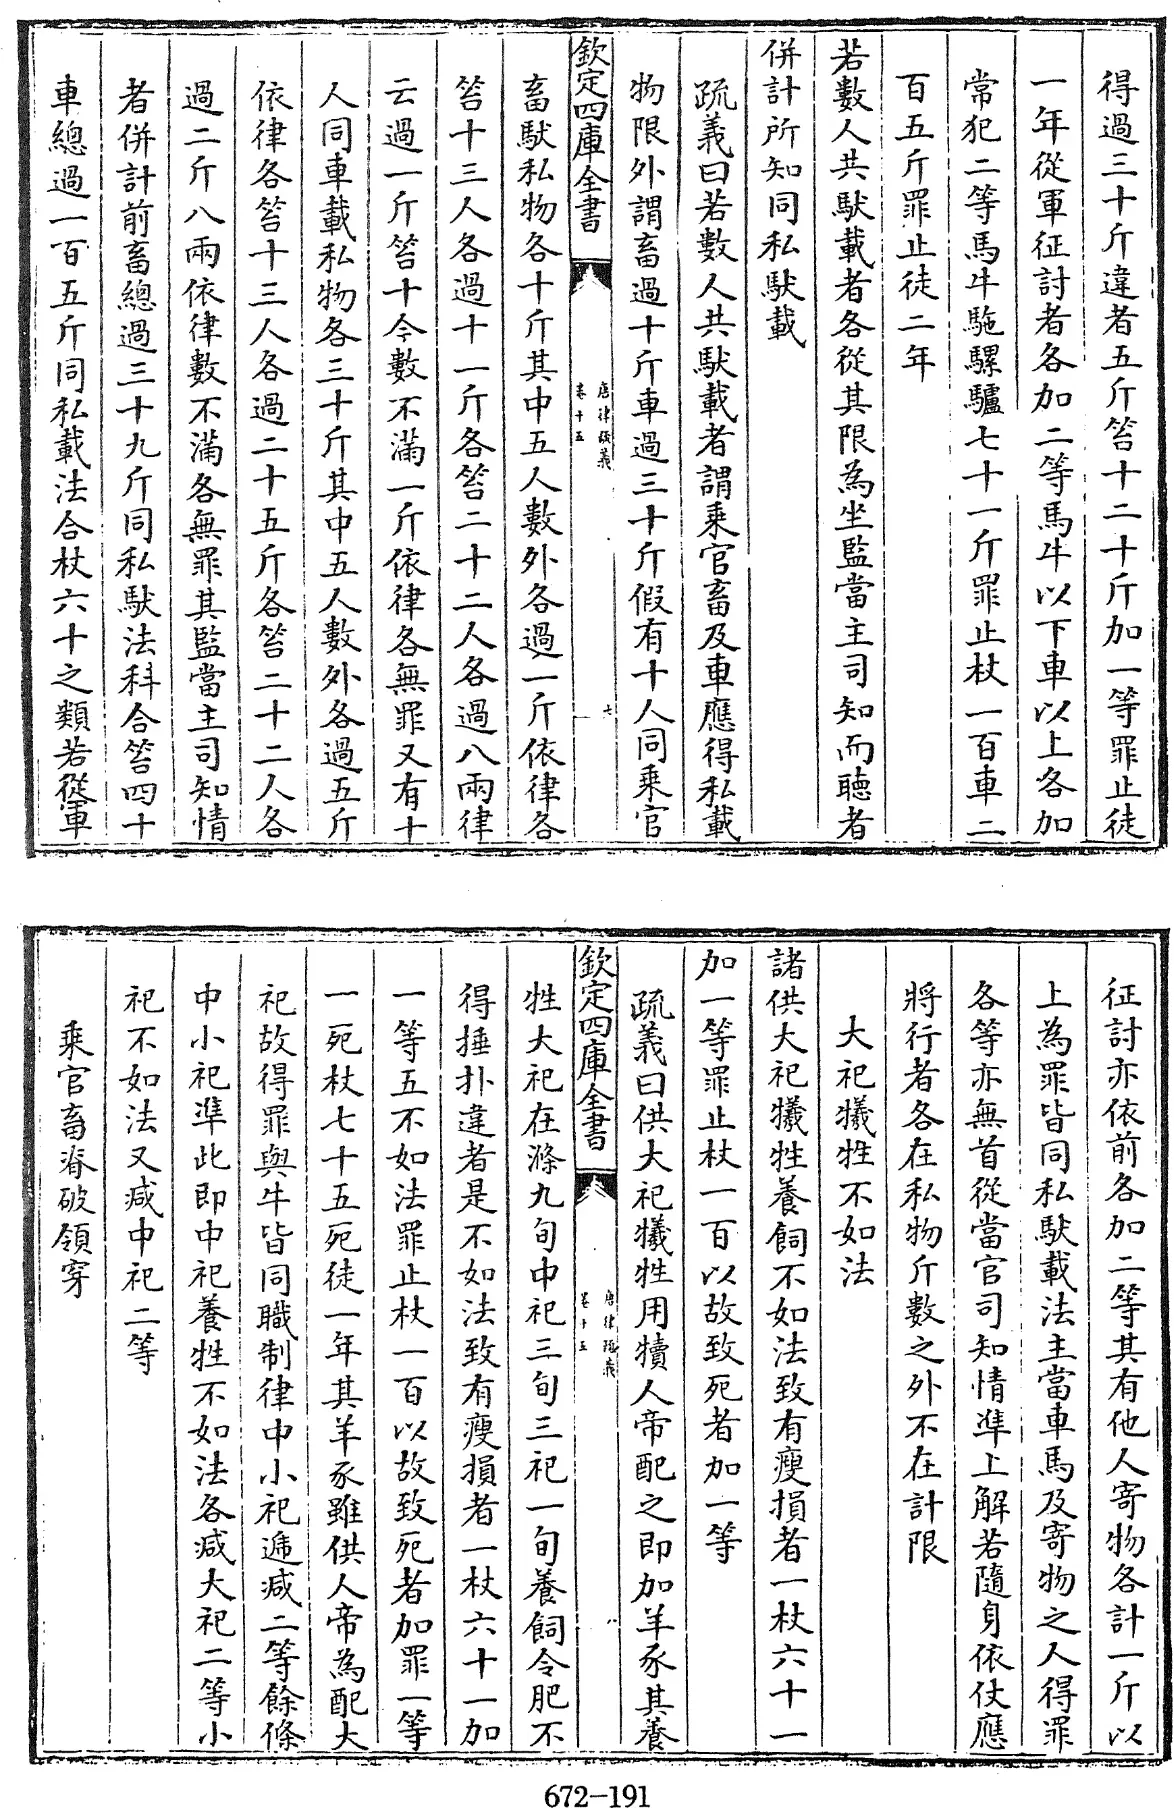 得過三十斤違者五斤笞十二十斤加一等罪止徒
一年從軍征討者各加二等馬牛以下車以上各加
常犯二等馬牛駞騾驢七十一斤罪止杖一百車二
百五斤罪止徒二年
若數人共馱載者各從其限為坐監當主司知而聽者
併計所知同私馱載
疏義曰若數人共馱載者謂乘官畜及車應得私載
物限外謂畜過十斤車過三十斤假有十人同乘官
欽定四庫全書
唐律疏義
卷十五
七
畜馱私物各十斤其中五人數外各過一斤依律各
笞十三人各過十一斤各笞二十二人各過八兩律
云過一斤笞十令數不滿一斤依律各無罪又有十
人同車載私物各三十斤其中五人數外各過五斤
依律各笞十三人各過二十五斤各笞二十二人各
過二斤八兩依律數不滿各無罪其監當主司知情
者併計前畜總過三十九斤同私馱法科合笞四十
車總過一百五斤同私載法合杖六十之類若從軍
征討亦依前各加二等其有他人寄物各計一斤以
上為罪皆同私馱載法主當車馬及寄物之人得罪
各等亦無首從當官司知情準上解若隨身依仗應
將行者各在私物斤數之外不在計限
大祀犧牲不如法
諸供大祀犧牲養飼不如法致有瘦損者一杖六十一
加一等罪止杖一百以故致死者加一等
疏義曰供大祀犧牲用犢人帝配之即加羊豕其養
欽定四庫全書
唐律疏義
卷十五
八
牲大祀在滌九旬中祀三旬三祀一旬養飼令肥不
得捶扑違者是不如法致有瘦損者一杖六十一加
一等五不如法罪止杖一百以故致死者加罪一等
一死杖七十五死徒一年其羊豕雖供人帝為配大
祀故得罪與牛皆同職制律中小祀遞减二等餘條
中小祀準此即中祀養牲不如法各减大祀二等小
祀不如法又减中祀二等
乘官畜脊破領穿
672-191